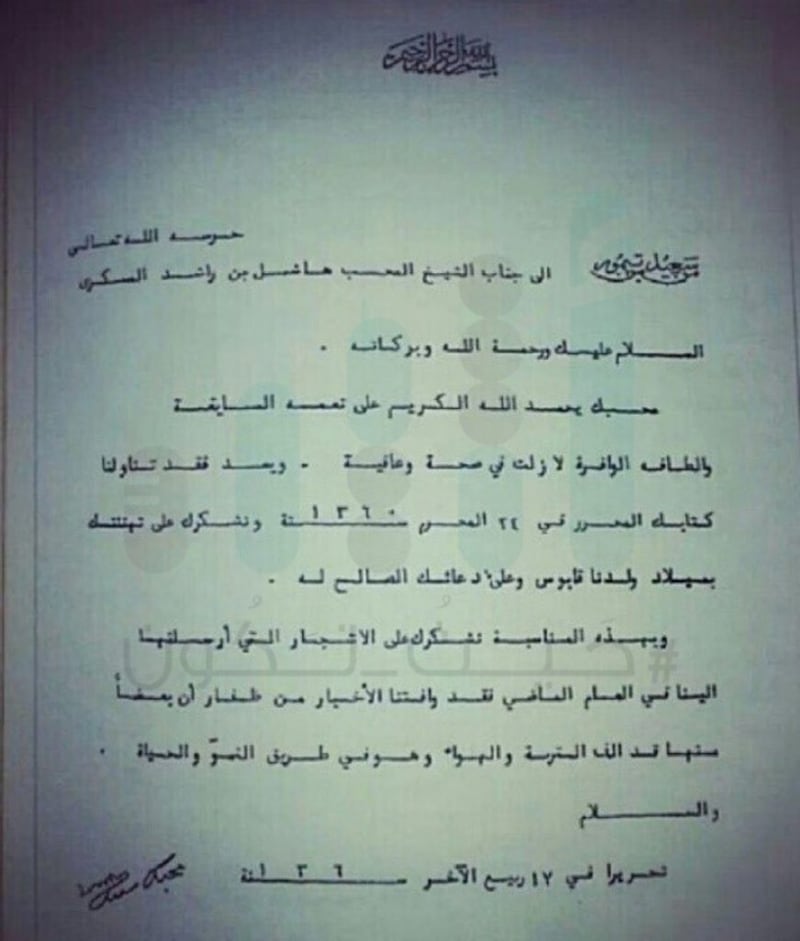 بسم الله الرحمن الرحيم
من سعيد بن تيمور
حرسه الله تعالى
الى جناب الشيخ المحب هاشل بن راشد المسكري
السلام عليك ورحمة الله وبركاته .
محبك يحمد الله الكريم على نعمه السابغة
والطافه الوافرة لا زلت في صحة وعافية . وبعد فقد تناولنا
كتابك المحرر في ٢٤ المحرم سنة ١٣٦٠ ونشكرك على تهنئتك
بميلاد ولدنا قابوس وعلى دعائك الصالح له .
وبهذه المناسبة نشكرك على الاشجار التي أرسلتها
الينا في العام الماضي فقد وافتنا الأخبار من ظفار أن بعضاً
منها قد الف التربة والهواء وهو في طريق النموّ والحياة .
والسلام
تحريرا في ١٢ ربيع الآخر سنة ١٣٦
محبك سعيد
#حيث_تكون